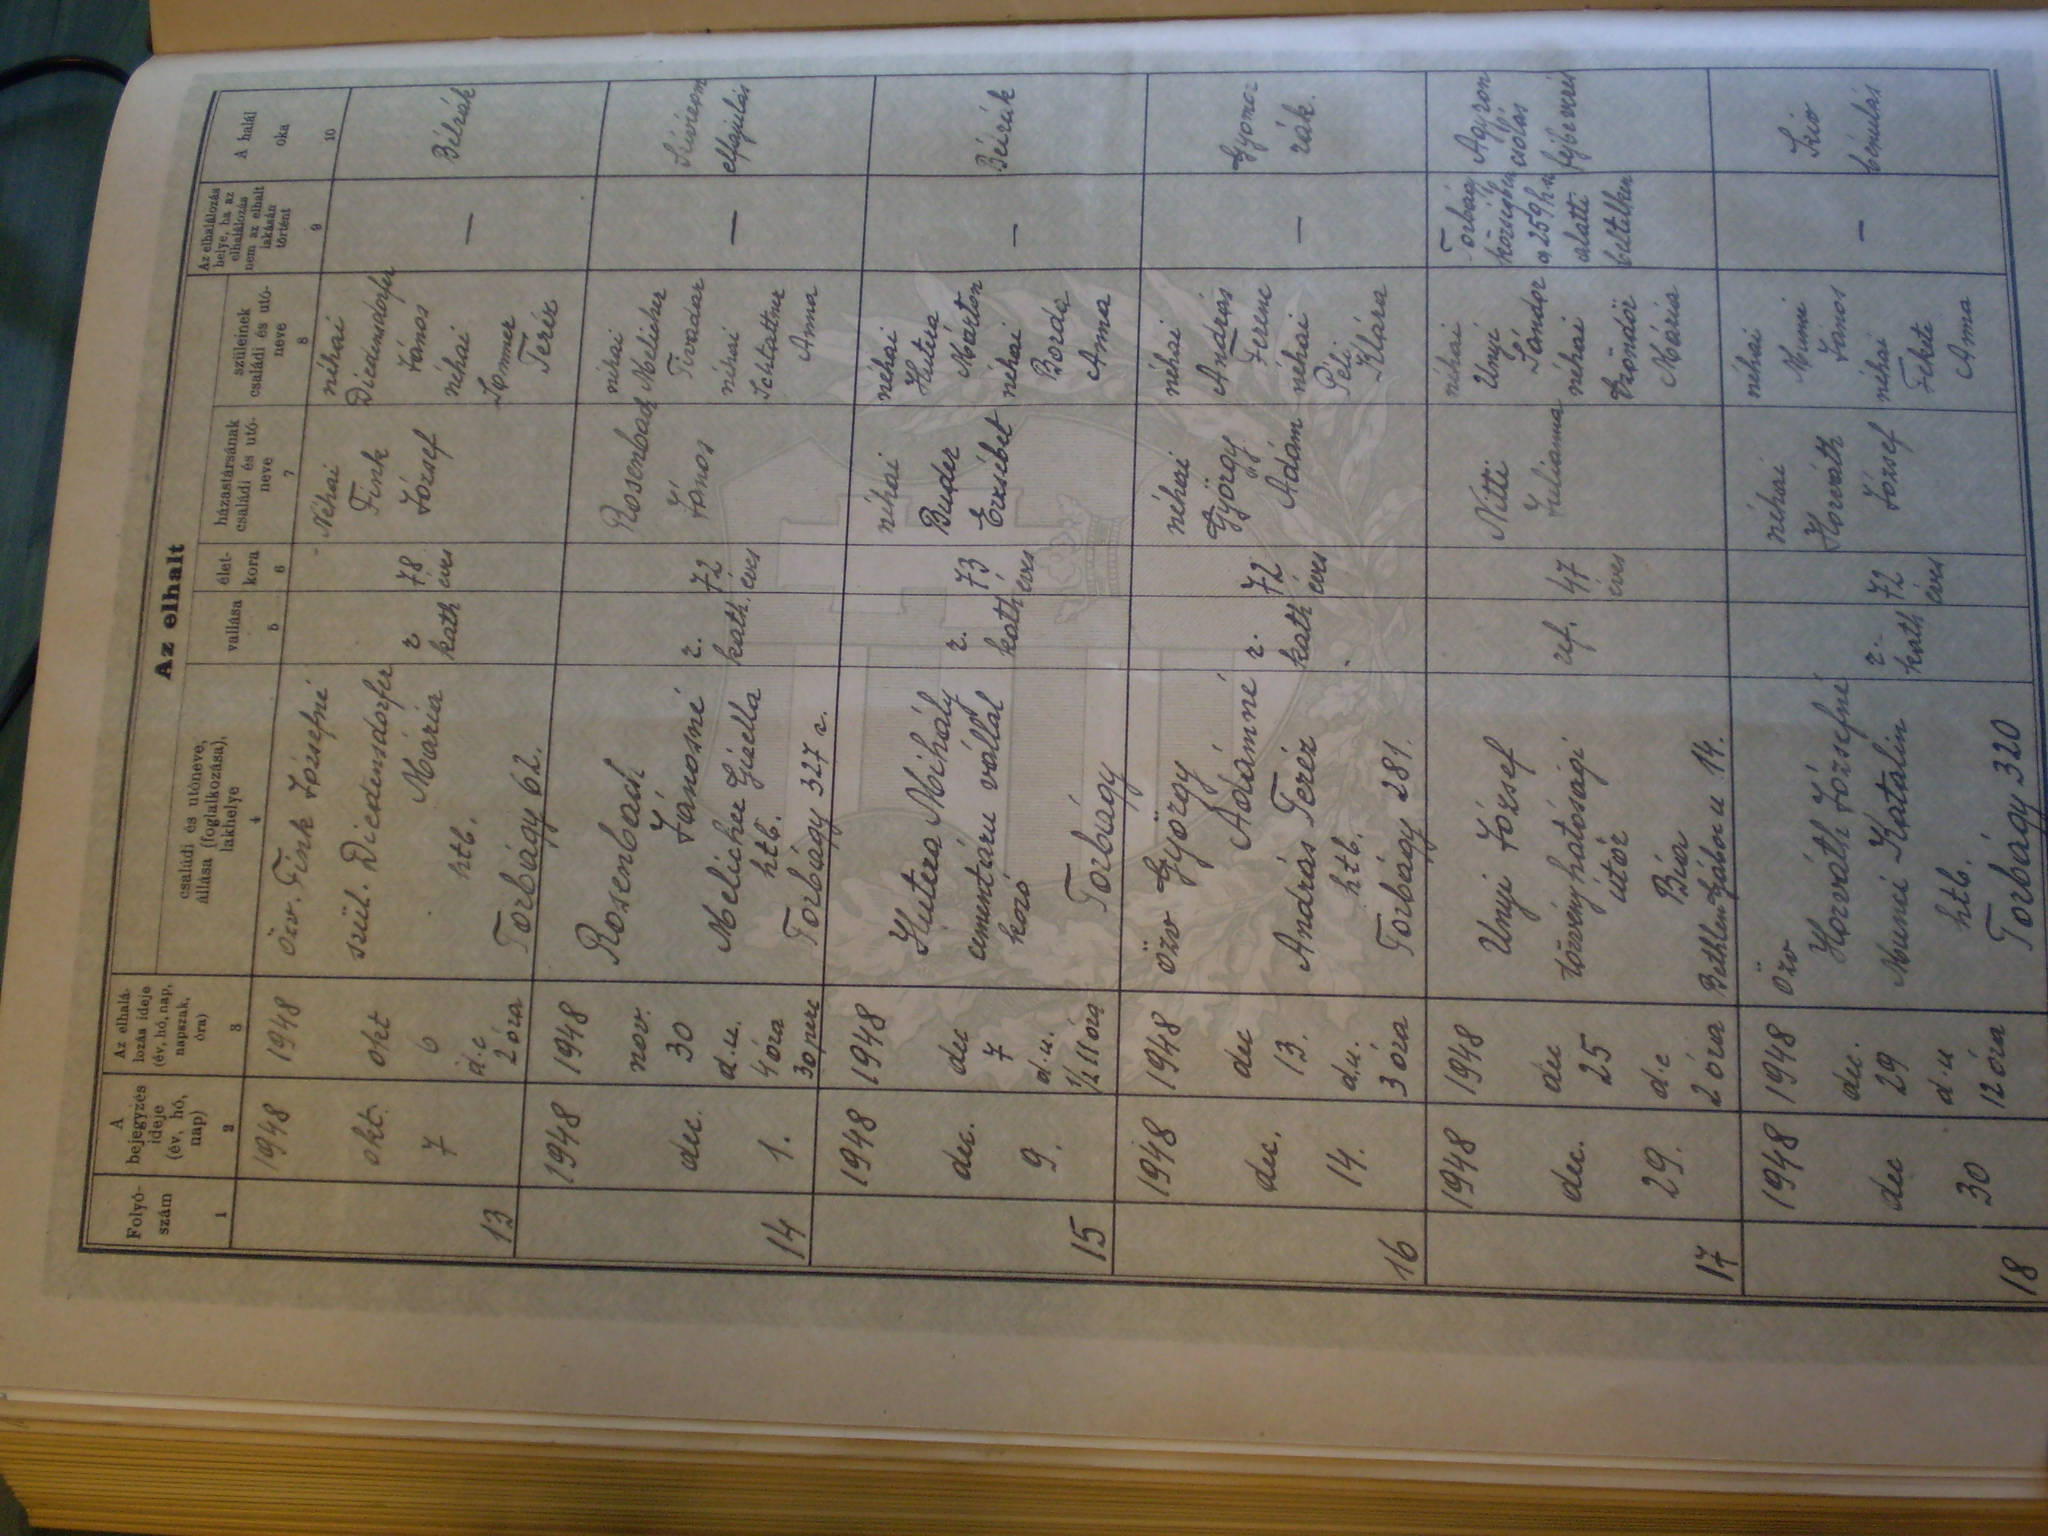 Az elhalt
Folyó-
szám
A
bejegyzés
ideje
(év, hó,
nap)
Az elhalá-
lozás ideje
(év, hó, nap,
napszak,
óra)
családi és utóneve,
állása (foglalkozása),
lakhelye
vallása
élet-
kora
házastársának
családi és utó-
neve
szüleinek
családi és utó-
neve
Az elhalálozás
helye, ha az
elhalálozás
nem az elhalt
lakásán
történt
A halál
oka
1
2
3
4
5
6
7
8
9
10
13
1948
okt.
7
1948
okt
6
d.e
2 óra
Özv. Fink Józsefné
szül. Diedensdorfer
Mária
htb.
Torbágy 62.
r
kath
78
éves
Néhai
Fink
József
néhai
Diedensdorfer
János
néhai
Teréz
—
Bélrák
14
1948
dec.
1.
1948
nov.
30
d.u.
4 óra
30 perc
Rosenbach
Jánosné
Melicher Gizella
htb.
Torbágy 327 a.
r.
kath.
72
éves
Rosenbach
János
néhai
Melicher
Tivadar
néhai
Schattner
Anna
—
Szívizom
elfajulás
15
1948
dec.
9.
1948
dec
7
d.u.
1/2 11 óra
Hutera Mihály
cementáru vállal
kozó
Torbágy
r.
kath
73
éves
néhai
Buder
Erzsébet
néhai
Hutera
Márton
néhai
Borda
Anna
—
Bélrák
16
1948
dec.
14.
1948
dec
13.
d.u.
3 óra
özv György
Adámné
András Teréz
htb.
Torbágy 281.
r.
kath
72
éves
néhai
György
Adám
néhai
András
Ferenc
néhai
Péli
Klára
—
Gyomor
rák.
17
1948
dec.
29.
1948
dec
25
d.e
2 óra
Unyi József
törvényhatósági
útőr
Bia
Bethlen Gábor u 14.
ref.
47
éves
Nitti
Julianna
néhai
Unyi
Sándor
néhai
Mária
Torbágy
községben
a 259 h.sz
alatti
béltelken
Agyron
csólás
fejsérülés
18
1948
dec
30
1948
dec.
29
d.u
12 óra
Özv
Horváth Józsefné
Munci Katalin
htb.
Torbágy 320
r.
kath
72
éves
néhai
Horváth
József
néhai
Munci
János
néhai
Fekete
Anna
—
Szív
bénulás